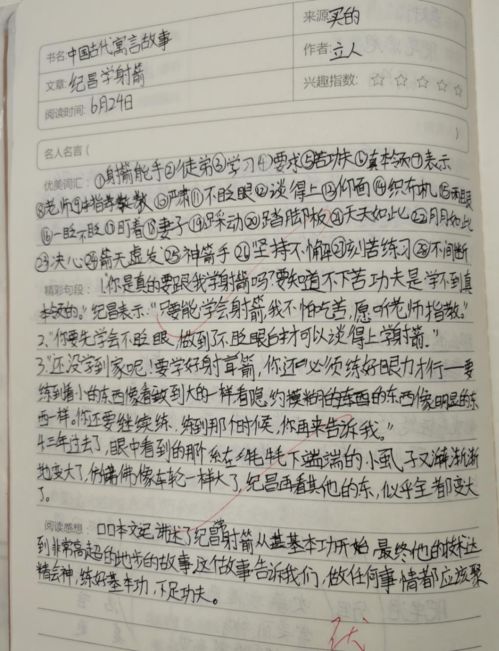 书名:中国古代寓言故事
来源:买的
文章:纪昌学射箭
作者:立人
阅读时间:6月24日
兴趣指数:☆☆☆☆☆
名人名言( )
优美词汇:①射箭能手②徒弟③学习④要求⑤苦功夫⑥真本领⑦表示
⑧老师⑨指教⑩严肃⑪不眨眼⑫谈得上⑬仰面⑭织布机⑮
⑯一眨不眨⑰盯着⑱妻子⑲踩动⑳踏脚板㉑天天如此㉒月月如此
㉓决心㉔箭无虚发㉕神箭手㉖坚持不懈㉗刻苦练习㉘不间断
精彩句段:1.你是真的要跟我学射箭吗?要知道不下苦功夫是学不到真
本领的。”纪昌表示:“只要能学会射箭,我不怕吃苦,愿听老师指教。”
2、“你要先学会不眨眼,做到了不眨眼才可以谈得上学射箭。”
3.“还没学到家呢!要学好射箭,你还必须练好眼力才行——要
练到看小的东西像看到大的一样,看隐约模糊的东西像明显的东
西一样。你还要继续练,练到那个时候,你再来告诉我。”
4.三年过去了,眼中看到的那个系在毛下端的小虱子又渐渐
地变大了,仿佛像车轮一样大了,纪昌再看其他的东,似乎全都变大
了。
阅读感想:口口本文记讲述了纪昌射箭从基本功开始,最终他的技术达
到非常高超的地步的故事,这个故事告诉我们,做任何事情都应该聚
精会神,练好基本功,下足功夫。